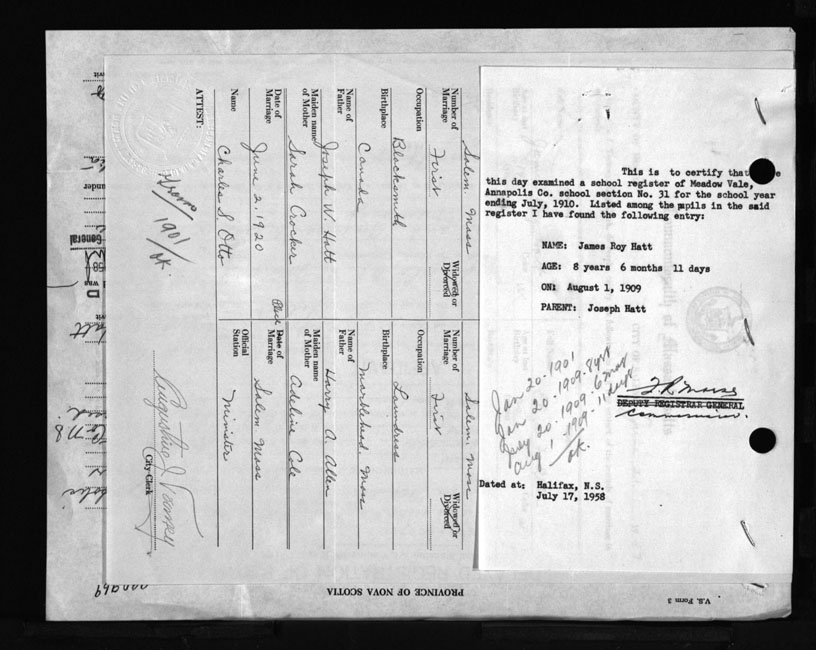 This is to certify that
this day examined a school register of Meadow Vale,
Annapolis Co. school section No. 31 for the school year
ending July, 1910. Listed among the pupils in the said
register I have found the following entry:
NAME: James Roy Hatt
AGE: 8 years 6 months 11 days
ON: August 1, 1909
PARENT: Joseph Hatt
Jan 20-1901
Jan 20-1909-8 yrs
July 20-1909-6 mos
Aug 1 1909-11 days
ok.
DEPUTY REGISTRAR GENERAL
Commissioner.
Dated at: Halifax, N.S.
July 17, 1958
Salem, Mass
Number of Marriage First Widowed or Divorced
Occupation Blacksmith
Birthplace Canada
Name of Father Joseph W. Hatt
Maiden name of Mother Sarah Crocker
Date of Marriage June 2, 1920
Name Charles S. Otto
ATTEST:
Salem, Mass
Number of Marriage First Widowed or Divorced
Occupation Laundress
Birthplace Marblehead, Mass
Name of Father Harry A. Allen
Maiden name of Mother Adeline Cole
Place Date of Marriage Salem Mass
Official Station Minister
1901
ok.
City Clerk
PROVINCE OF NOVA SCOTIA
V.S. Form 3
General
under